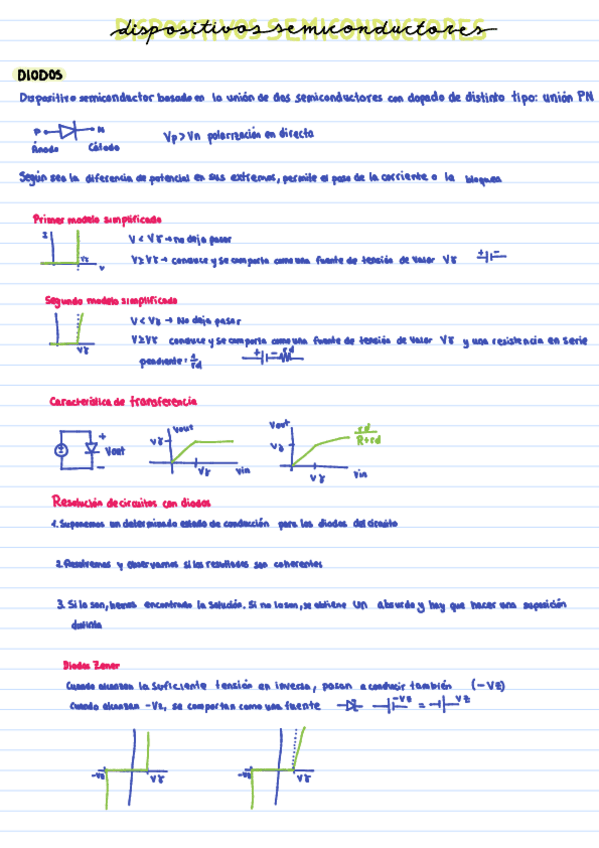 dispositivos semiconductores
DISPOSITIVOS SEMICONDUCTORES
DIODOS
Dispositivo semiconductor basado en la unión de dos semiconductores con dopado de distinto tipo: unión PN
P N
Ánodo Cátodo
Vp > Vn polarización en directa
Según sea la diferencia de potencial en sus extremos, permite el paso de la corriente o la bloquea
Primer modelo simplificado
I
V < Vγ → no deja pasar
V ≥ Vγ → conduce y se comporta como una fuente de tensión de valor Vγ + -
Vγ V
Segundo modelo simplificado
V < Vγ → No deja pasar
V ≥ Vγ conduce y se comporta como una fuente de tensión de valor Vγ y una resistencia en serie
Vγ
pendiente: 1/rd + - rd
Característica de transferencia
+ Vout -
Vout Vγ Vγ Vin
Vout Vγ Vγ Vin rd/R+rd
Resolución de circuitos con diodos
1. Suponemos un determinado estado de conducción para los diodos del circuito
2. Resolvemos y observamos si los resultados son coherentes
3. Si lo son, hemos encontrado la solución. Si no lo son, se obtiene un absurdo y hay que hacer una suposición
distinta
Diodos Zener
Cuando alcanzan la suficiente tensión en inversa, pasan a conducir también (-Vz)
Cuando alcanzan -Vz, se comportan como una fuente -Vz = Vz
-Vz Vγ
-Vz Vγ